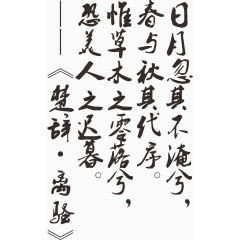 日月忽其不淹兮，
春与秋其代序。
惟草木之零落兮，
恐美人之迟暮。
——《楚辞·离骚》